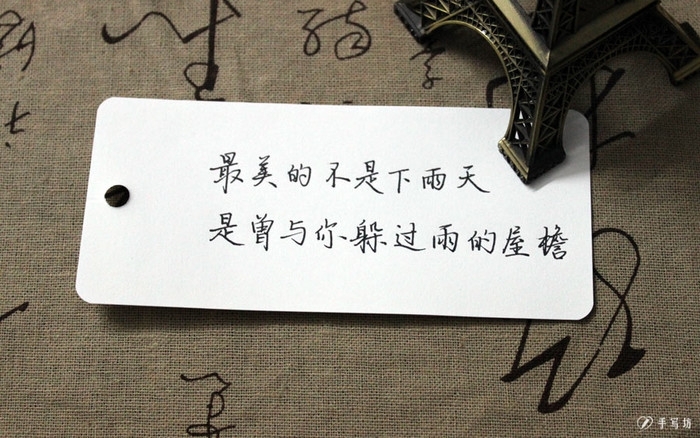 最美的不是下雨天
是曾与你躲过雨的屋檐
手写坊